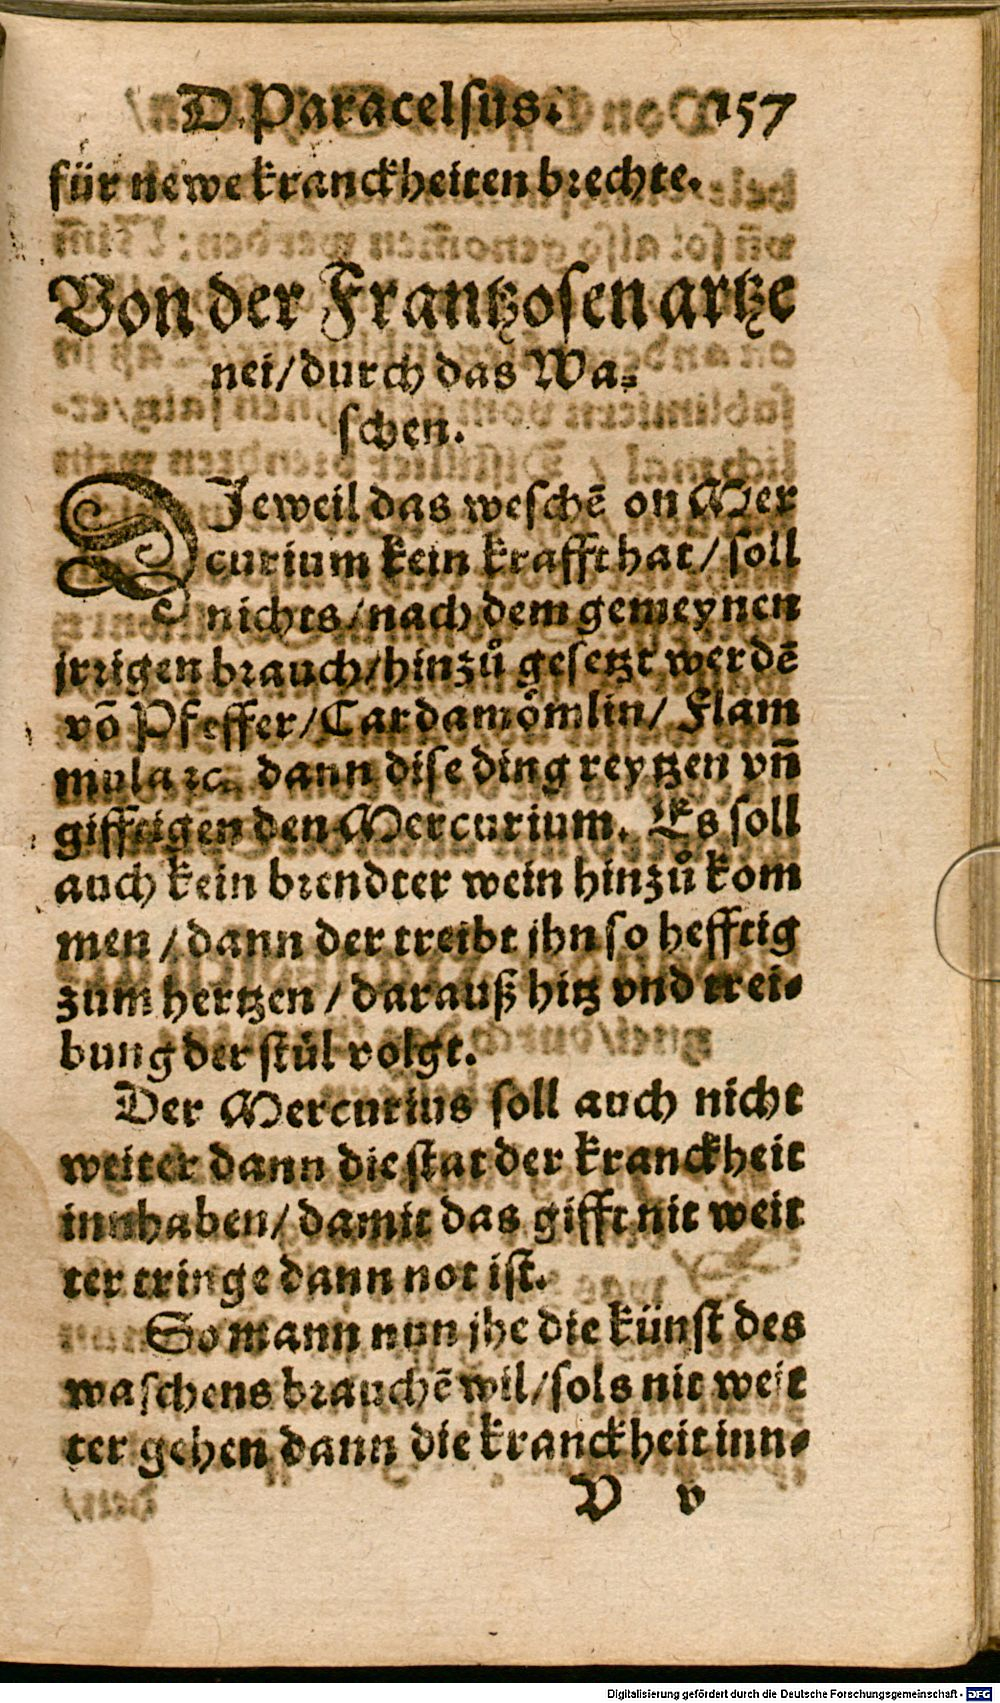 D. Paracelsus. 157
für newe kranckheiten brechte.
Von der Frantzosen artze
nei/durch das Wa⸗
schen.
DJeweil das weschē on Mer
curium kein krafft hat/soll
nichts/nach dem gemeynen
jrrigen brauch/hinzů gesetzt werdē
vō Pfeffer/Cardamömlin/Flam
mula ꝛc. dann dise ding reytzen vn̄
gifftigen den Mercurium. Es soll
auch kein brendter wein hinzů kom
men/dann der treibt jhn so hefftig
zum hertzen/darauß hitz vnd trei⸗
bung der stůl volgt.
Der Mercurius soll auch nicht
weiter dann die stat der kranckheit
innhaben/damit das gifft nit weit
ter tringe dann not ist.
So mann nun jhe die künst des
waschens brauchē wil/sols nit weit
ter gehen dann die kranckheit inn⸗
V v
Digitalisierung gefördert durch die Deutsche Forschungsgemeinschaft - DFG